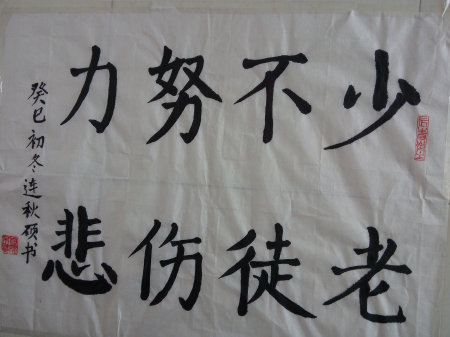 少不努力
老徒伤悲
癸巳初冬连秋硕书